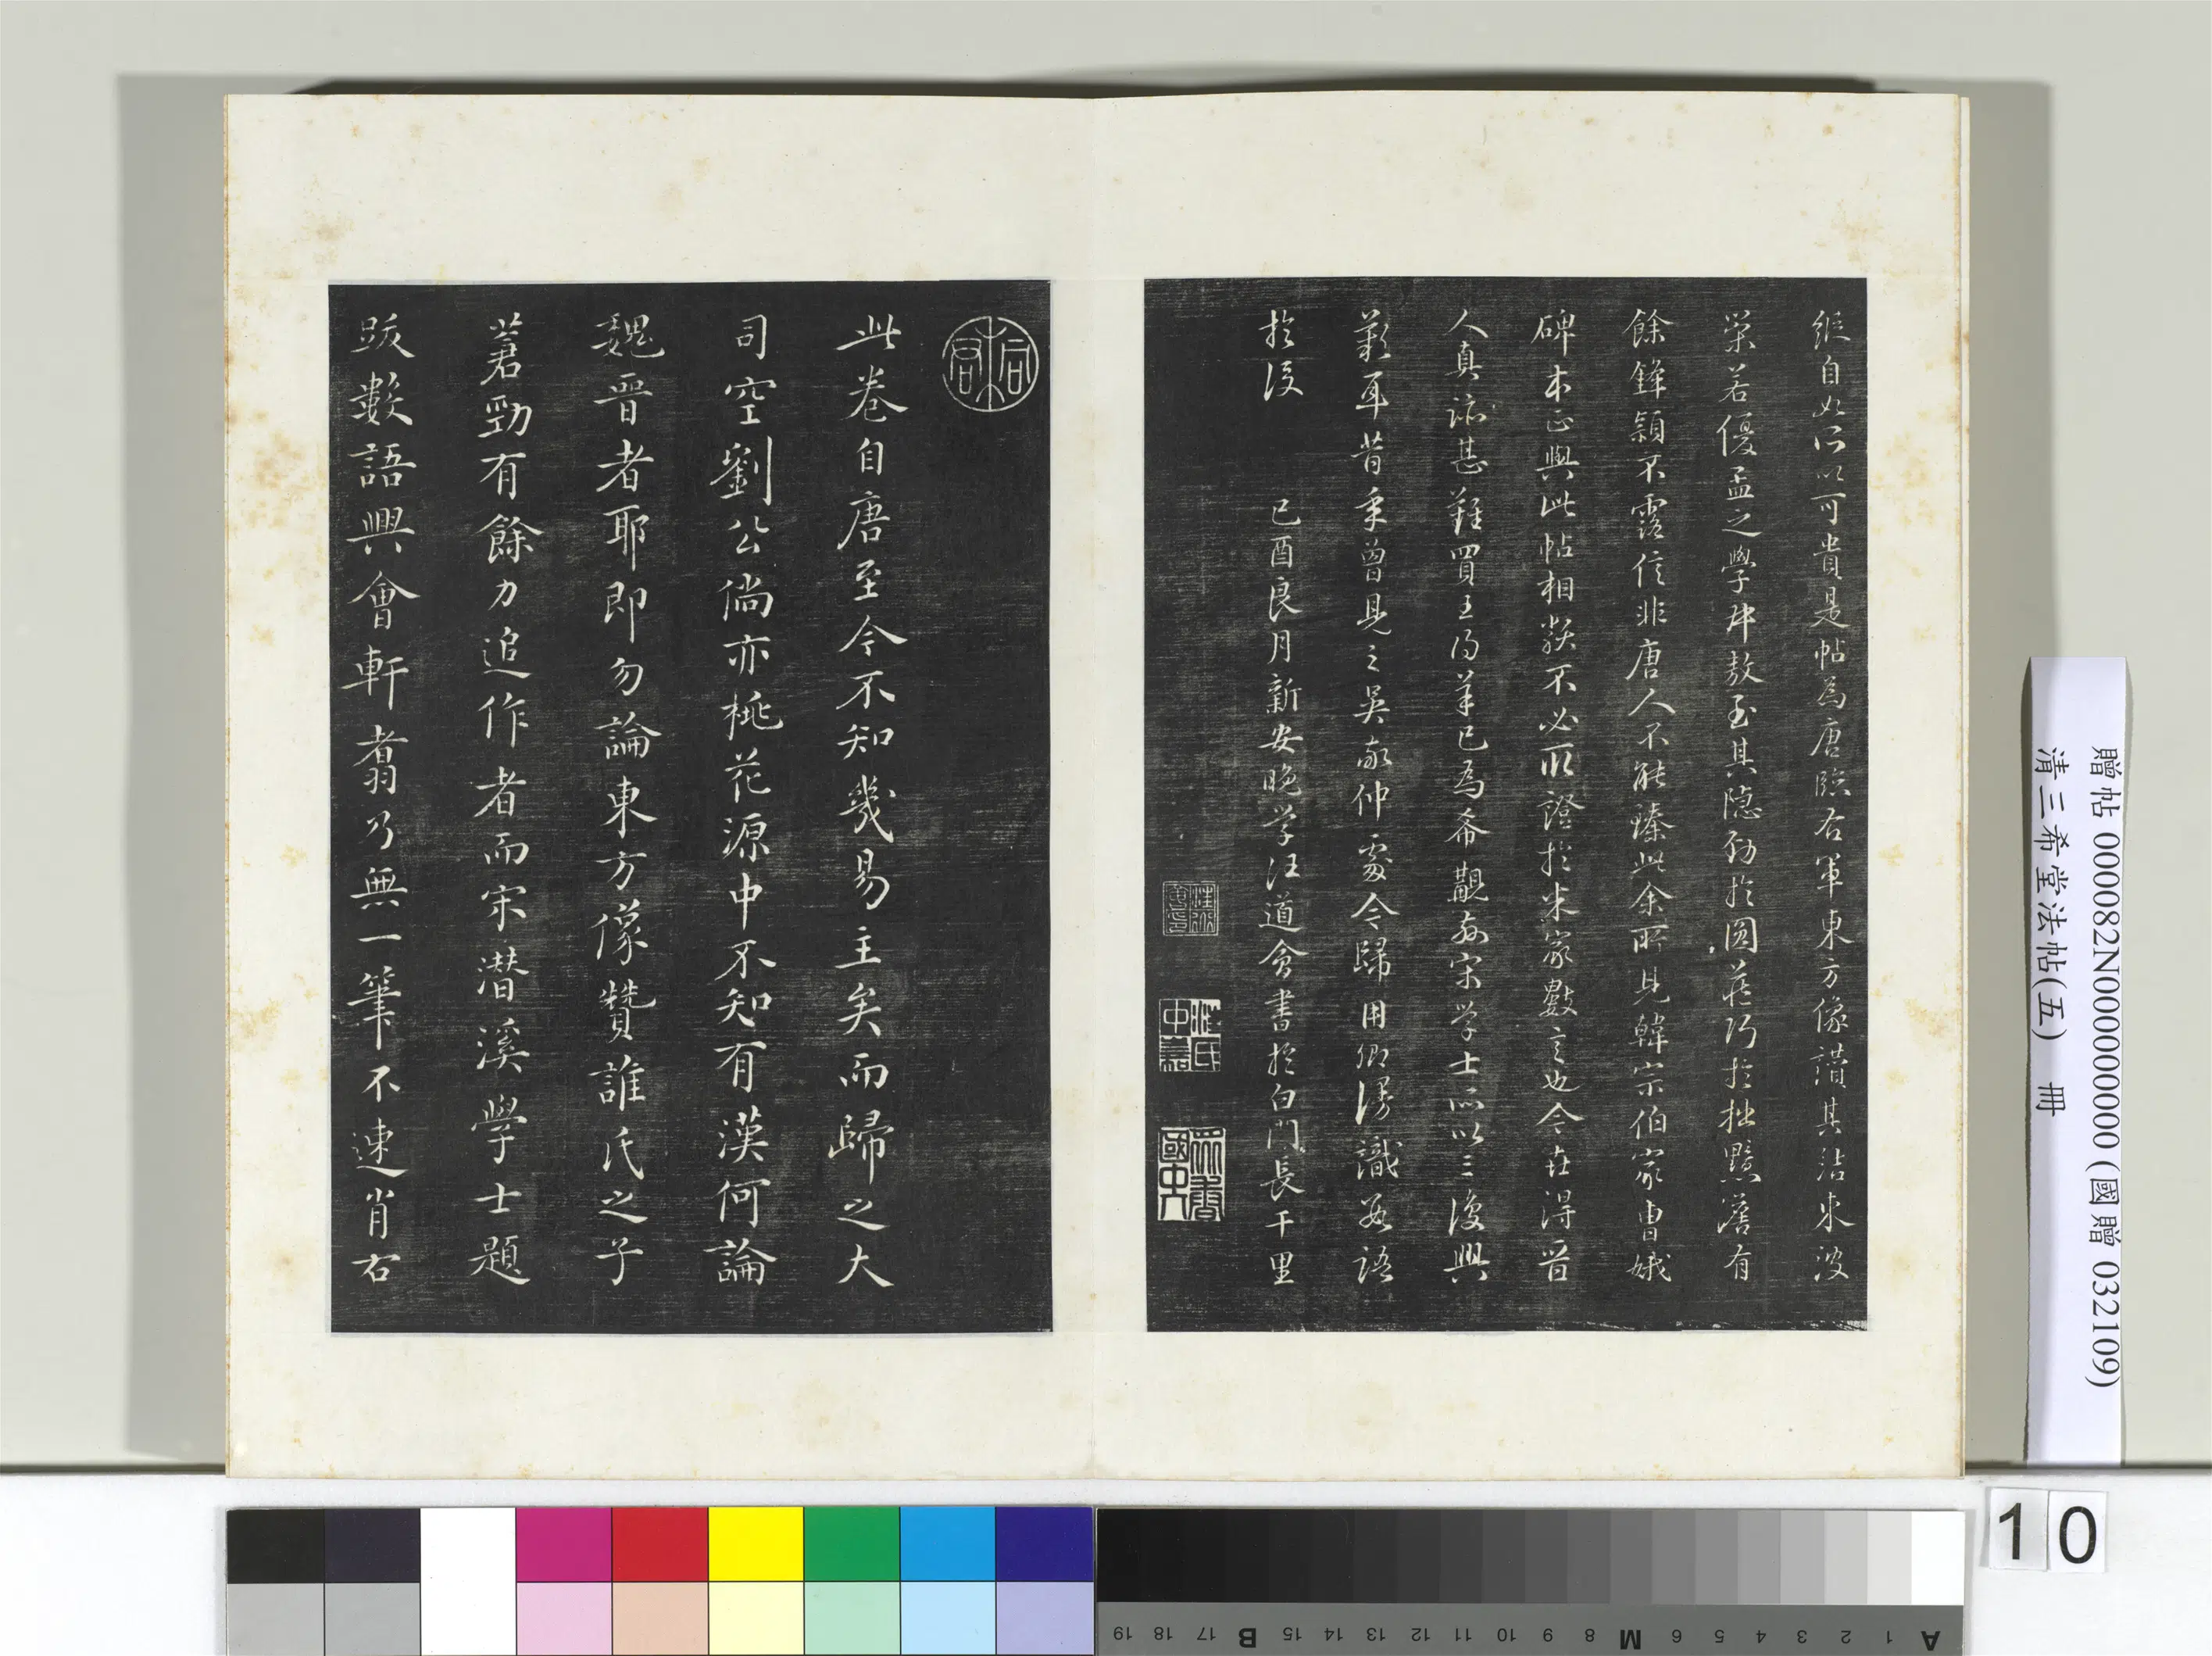 縱自如所以可貴是帖為唐臨右軍東方像讚其沾來波
榮若優孟之學叔敖至其隱勁於圓藏巧於拙黯澹有
餘鋒穎不露信非唐人不能臻此余所見韓宗伯家曹娥
碑本正與此帖相類不必取證於米家數言也今在得晉
人真迹甚難買王得羊已為希覯如宋學士所以三復興
歎耳昔年曾見之吳敬仲處今歸用卿漫識數語
於後
己酉良月新安晚学汪道會書於白門長干里
此卷自唐至今不知幾易主矣而歸之大
司空劉公倘亦桃花源中不知有漢何論
魏晉者耶即勿論東方像贊誰氏之子
蒼勁有餘力追作者而宋潜溪學士題
跋數語興會軒翥乃無一筆不速肖右
贈帖 000082N000000000 (國贈 032109)
清三希堂法帖(五) 冊
10
A 1 2 3 4 5 6 M 8 9 10 11 12 13 14 15 B 17 18 19